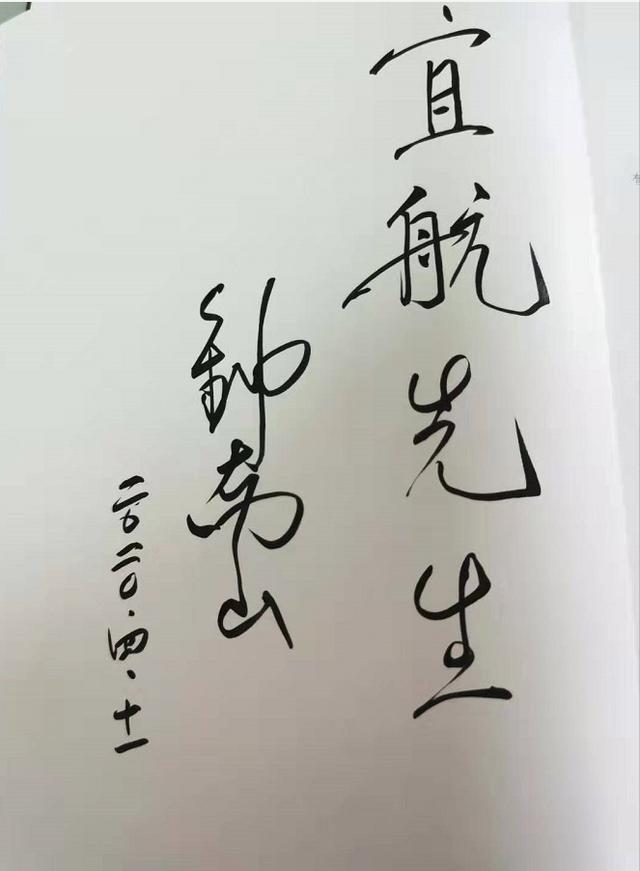 宜航先生
钟南山
二〇二〇.四.十一